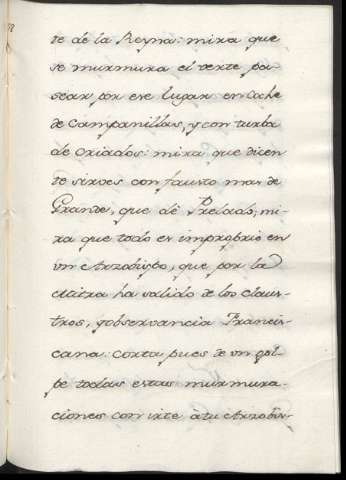 te de la Reyna: mira que
se murmura el verte pa-
sear por ese lugar en Coche
de Campanillas, y con turba
de Criados: mira que dicen
te sirves con fausto mas de
Grande, que de Prelado; mi-
ra que todo es improprio en
un Arzobispo, que por la
Mitra ha salido de los Claus-
tros, y observancia Francis-
cana: corta pues de un gol-
pe todas estas murmura-
ciones con irte à tu Arzobis-